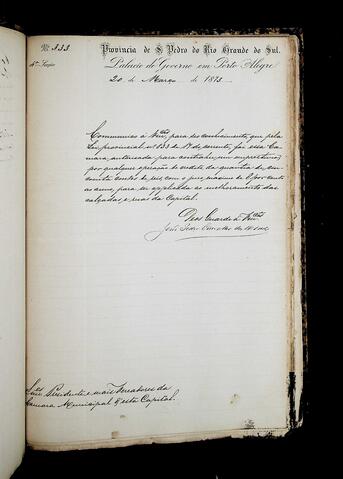 Nº 333
Provincia de S. Pedro do Rio Grande do Sul.
4ª Secção
Palacio do Governo em Porto Alegre
20 de Março de 1873
Communico a Vmces, para seu conhecimento, que pela
Lei provincial nº 833 de 17 do corrente, foi essa Ca-
mara autorisada para contrahir um emprestimo,
por qualquer operação de credito da quantia de
contos de reis, com o juro maximo de 8 por cento
ao anno, para ser applicada ao melhoramento das
calçadas e ruas da Capital.
Deos Guarde a Vmces
Snres Presidente e mais Vereadores da
Camara Municipal desta Capital.